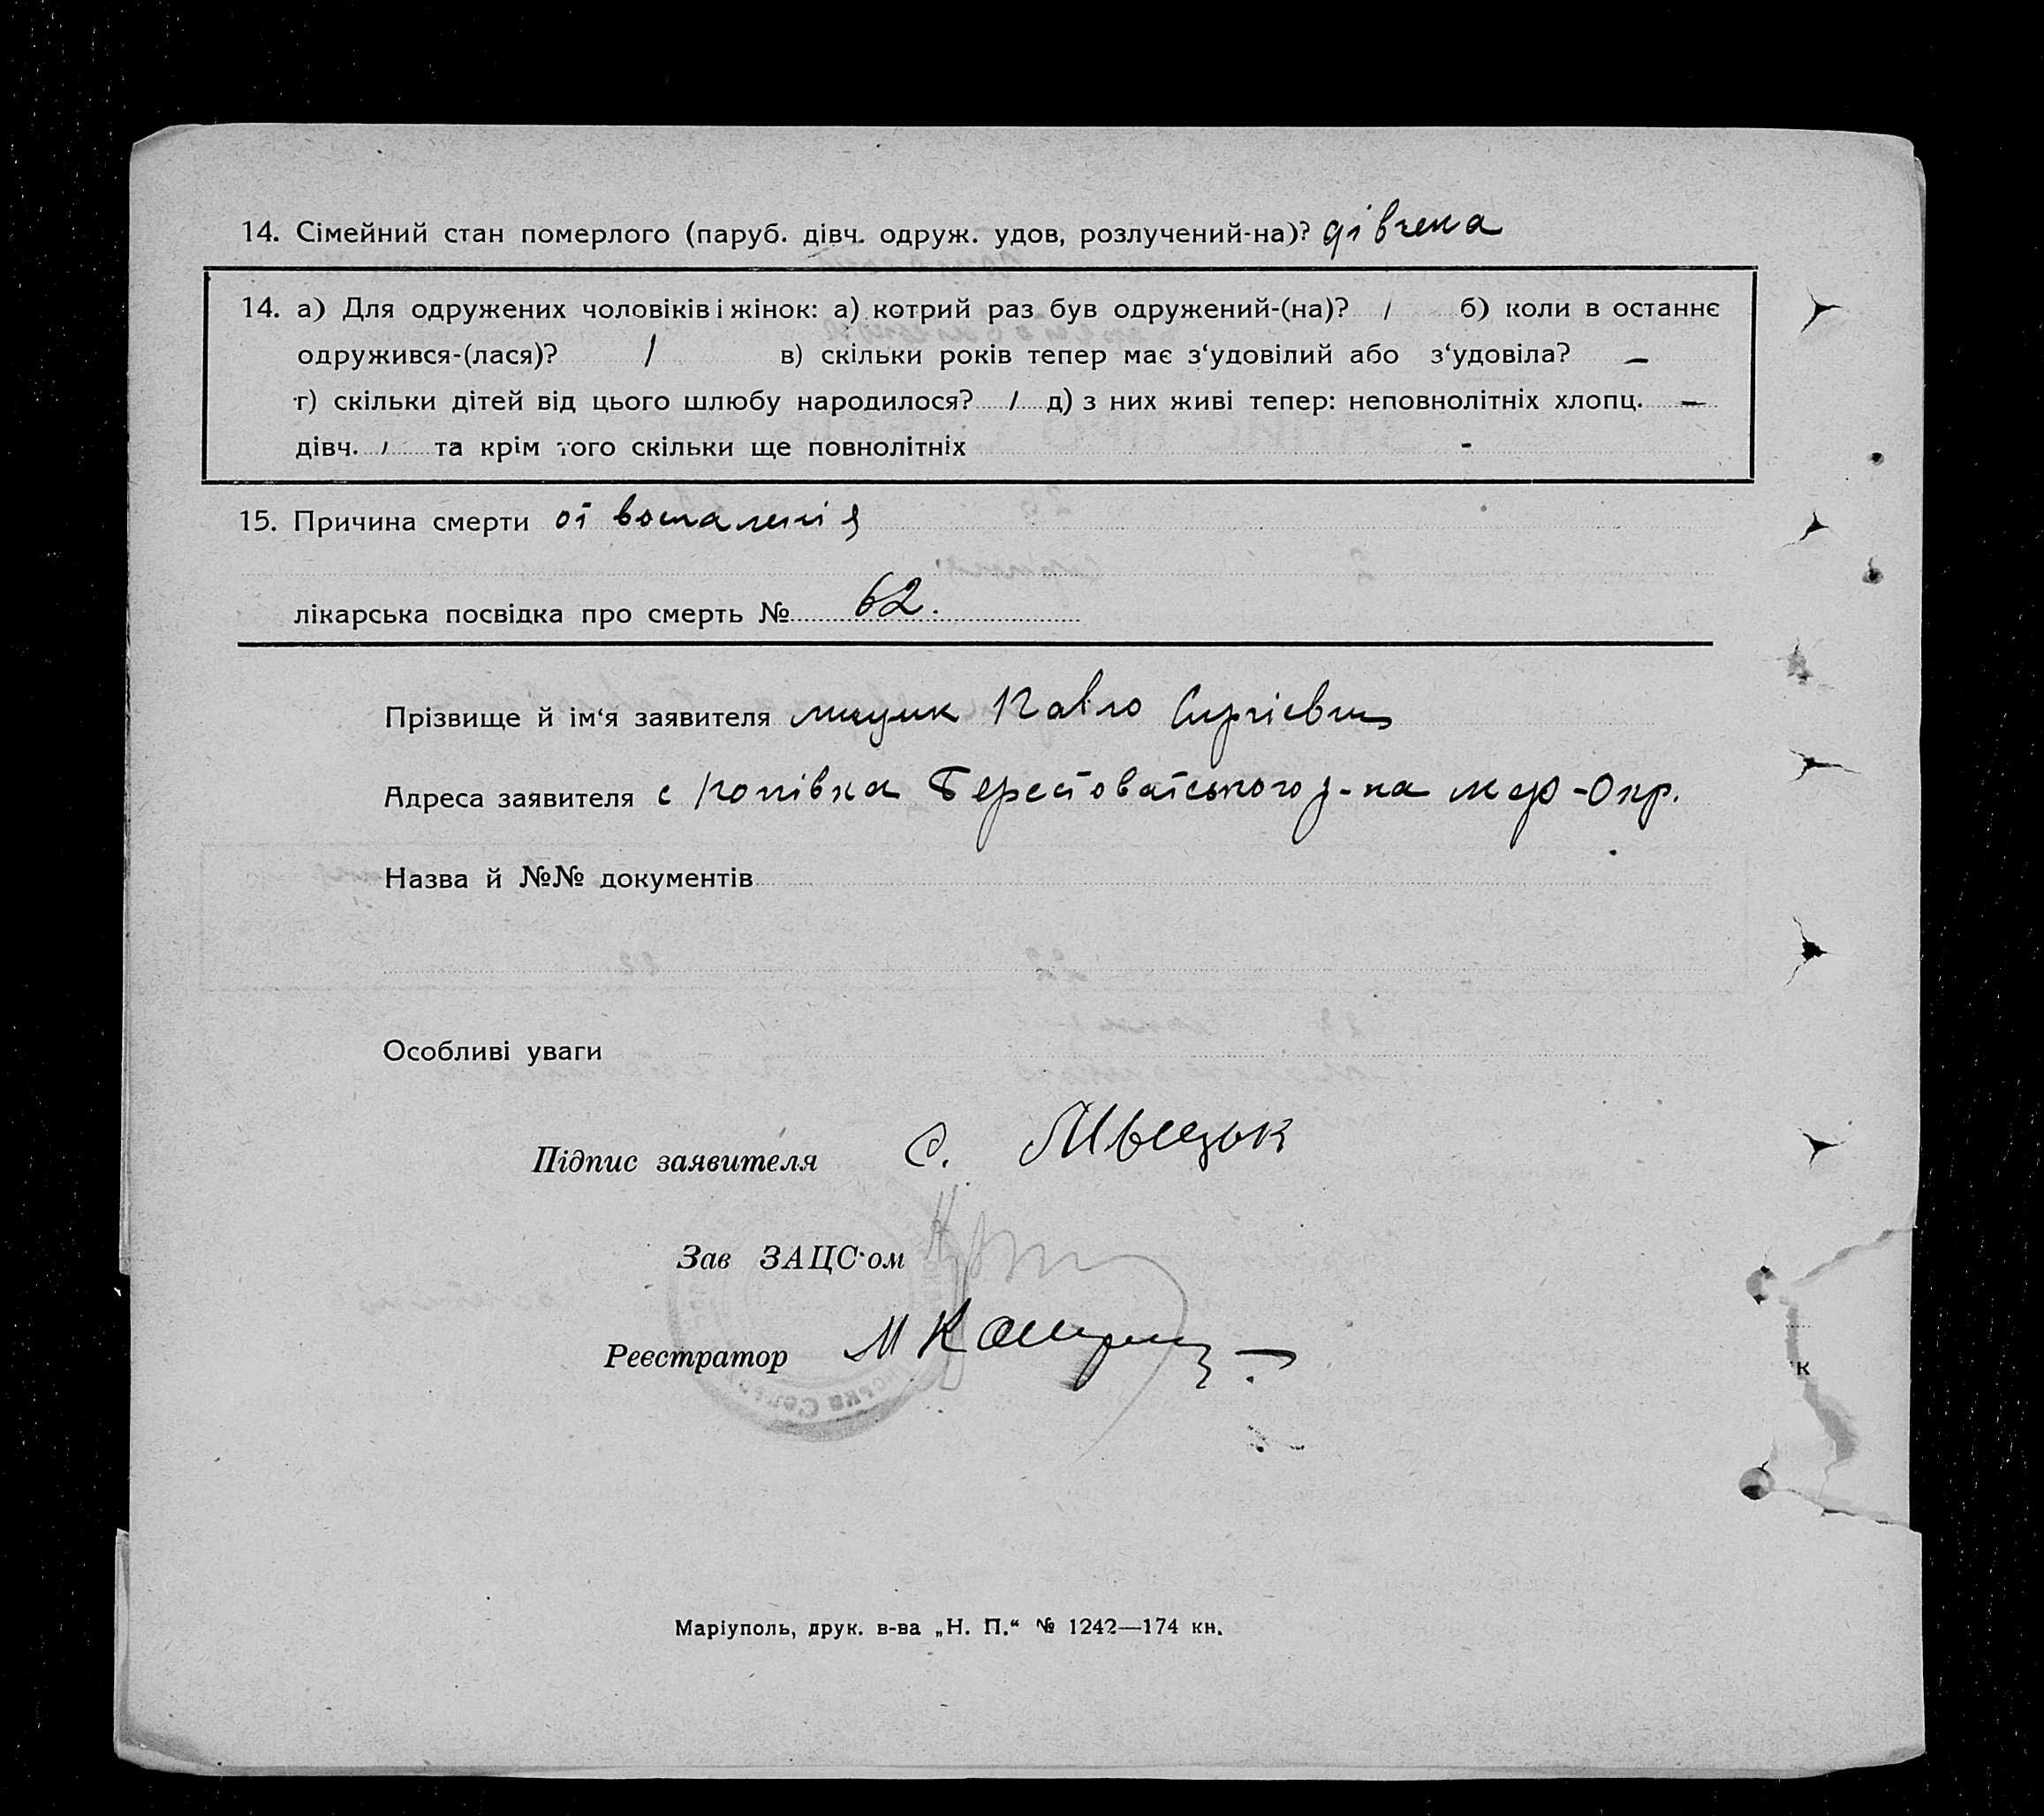 14. Сімейний стан померлого (паруб. дівч. одруж. удов, розлучений-на)? дівчена
14. а) Для одружених чоловіків і жінок: а) котрий раз був одружений-(на)? / б) коли в останнє
одружився-(лася)? / в) скільки років тепер має з‘удовілий або з‘удовіла? —
г) скільки дітей від цього шлюбу народилося? / д) з них живі тепер: неповнолітніх хлопц. —
дівч. / та крім того скільки ще повнолітніх -
15. Причина смерти от воспаленія
лікарська посвідка про смерть № 62.
Прізвище й ім‘я заявителя Мицик Павло Сиргіевич
Адреса заявителя с Копівка Берестоватського р-на Мар-Окр.
Назва й №№ документів
Особливі уваги
Підпис заявителя С.
Зав ЗАЦС‘ом
Реєстратор М
к
Маріуполь, друк. в-ва „Н. П.“ № 1242—174 кн.